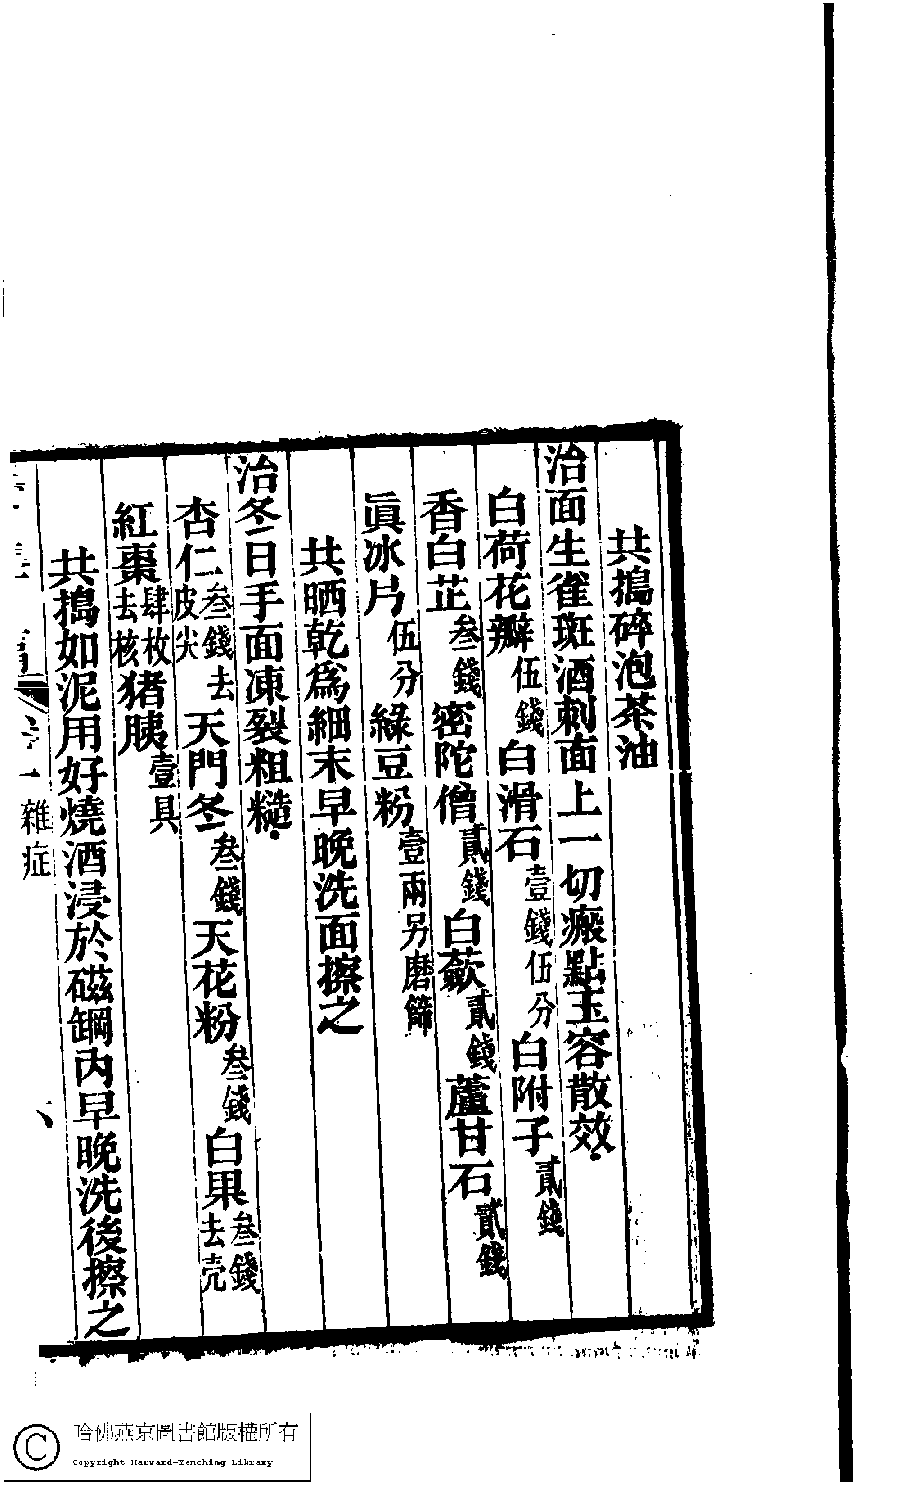 共搗碎泡茶油
治面生雀斑酒刺面上一切瘢點玉容散效
白荷花瓣伍錢白滑石壹錢伍分白附子貳錢
香白芷叁錢密陀僧貳錢白蘞貳錢蘆甘石貳錢
眞冰片伍分綠豆粉壹兩另磨篩
共晒乾爲細末早晚洗面擦之
治冬日手面凍裂粗糙
杏仁叁錢去皮尖天門冬叁錢天花粉叁錢白果叁錢去壳
紅棗肆枚去核猪胰壹具
共搗如泥用好燒酒浸於磁鋼內早晚洗後擦之
雜症
哈佛燕京圖書館版權所有
Copyright Harvard-Yenching Library